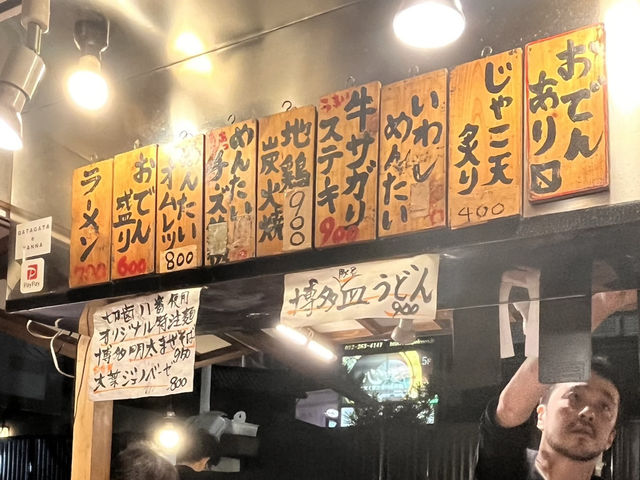 おでん
あり
じゃこ天
炙り
400
いわし
めんたい
牛サガリ
ステキ
900
地鶏
炭火焼
900
めんたい
めんたい
オムレツ
800
おでん
盛り
600
ラーメン
700
BATAGATA
YANNA
PayPay
使用
オリジナル特注麺
博多明太まぜそば
950
大葉ジェノベーゼ
800
博多皿うどん
900